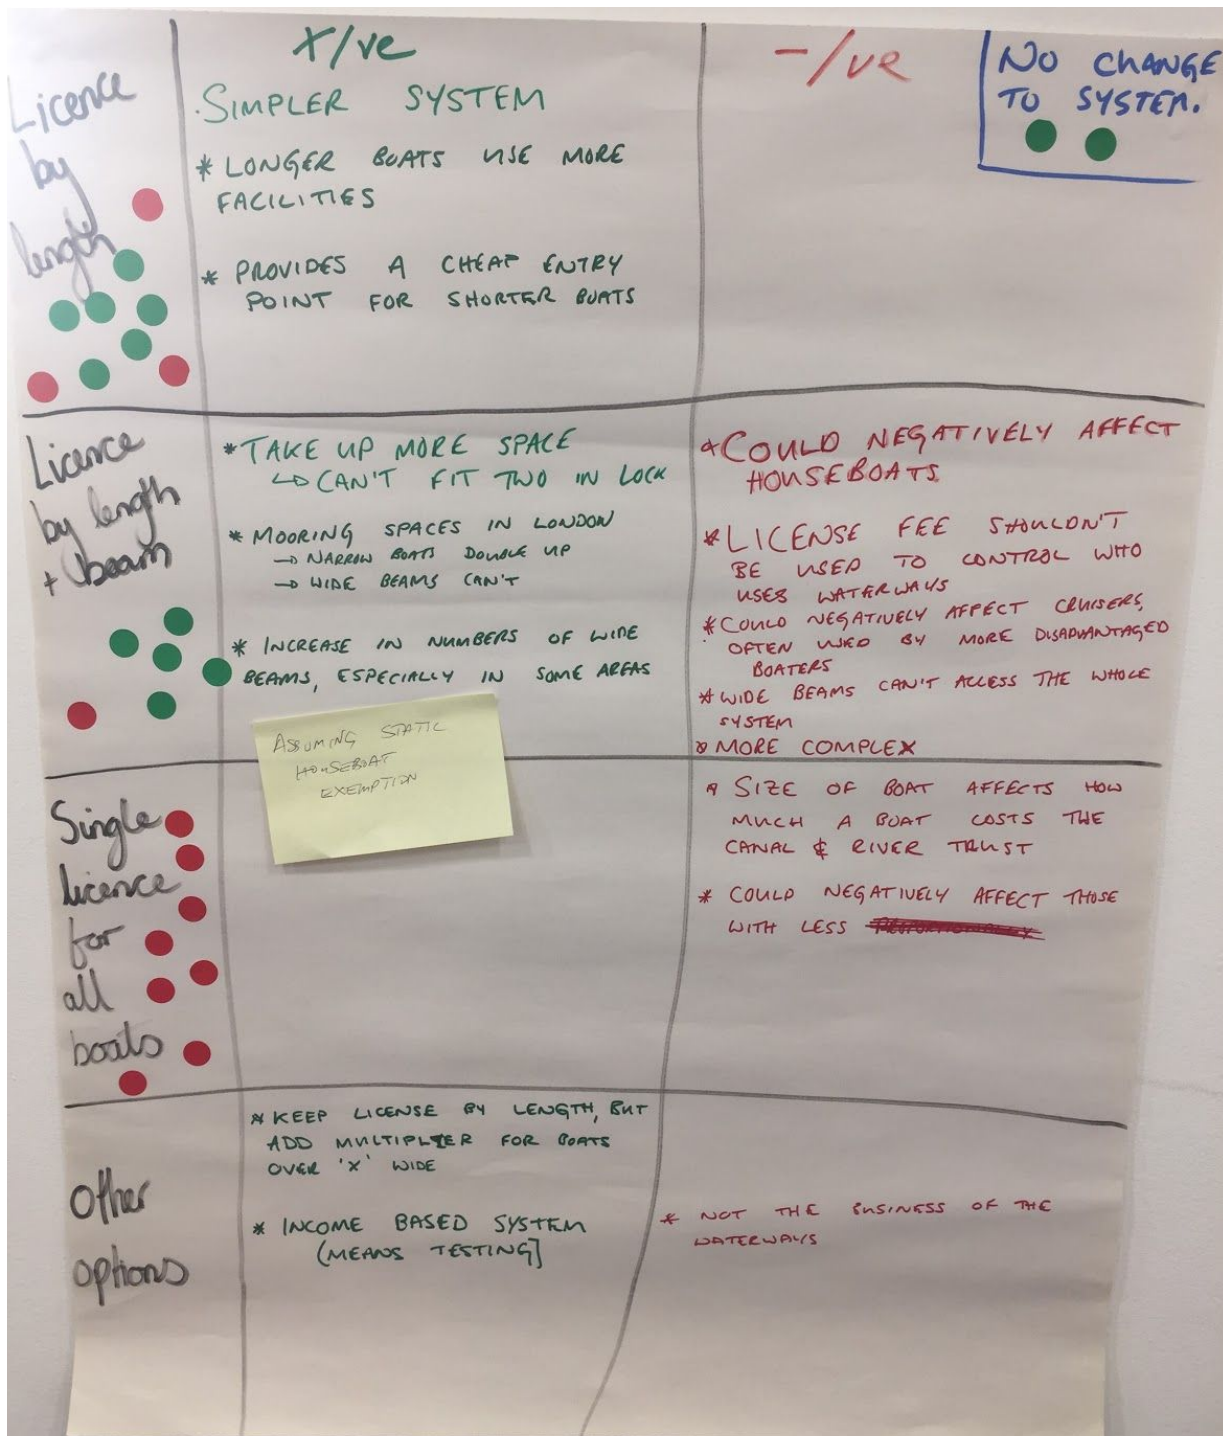 +/ve
-/ve
NO CHANGE
TO SYSTEM.
Licence
by
length
·SIMPLER SYSTEM
* LONGER BOATS USE MORE
FACILITIES
* PROVIDES A CHEAP ENTRY
POINT FOR SHORTER BOATS
Licence
by length
+ beam
* TAKE UP MORE SPACE
↳ CAN'T FIT TWO IN LOCK
* MOORING SPACES IN LONDON
→ NARROW BOATS DOUBLE UP
→ WIDE BEAMS CAN'T
* INCREASE IN NUMBERS OF WIDE
BEAMS, ESPECIALLY IN SOME AREAS
ASSUMING STATIC
HOUSEBOAT
EXEMPTION
* COULD NEGATIVELY AFFECT
HOUSEBOATS.
* LICENSE FEE SHOULDN'T
BE USED TO CONTROL WHO
USES WATERWAYS
* COULD NEGATIVELY AFFECT CRUISERS,
OFTEN USED BY MORE DISADVANTAGED
BOATERS
* WIDE BEAMS CAN'T ACCESS THE WHOLE
SYSTEM
* MORE COMPLEX
Single
licence
for
all
boats
* SIZE OF BOAT AFFECTS HOW
MUCH A BOAT COSTS THE
CANAL & RIVER TRUST
* COULD NEGATIVELY AFFECT THOSE
WITH LESS
Other
options
* KEEP LICENSE BY LENGTH, BUT
ADD MULTIPLIER FOR BOATS
OVER 'X' WIDE
* INCOME BASED SYSTEM
(MEANS TESTING]
* NOT THE BUSINESS OF THE
WATERWAYS